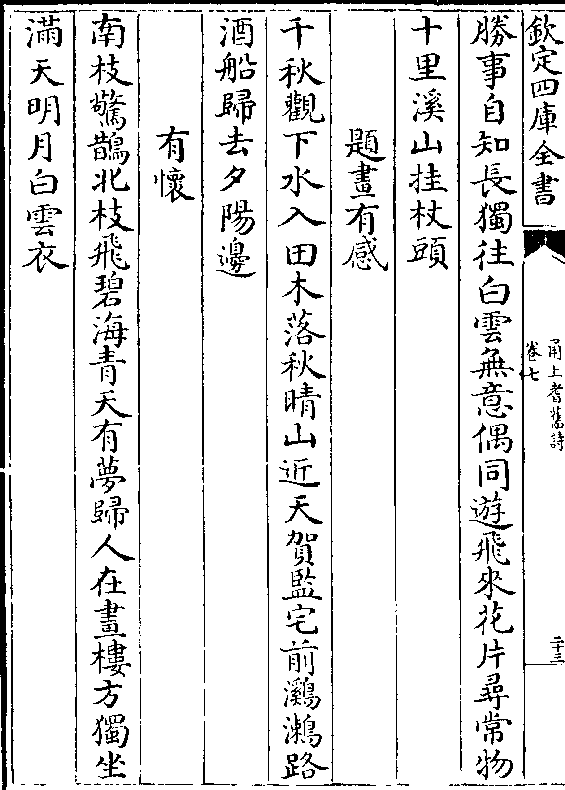 欽定四庫全書
甬上耆舊詩
卷七
二十三
勝事自知長獨往白雲無意偶同遊飛來花片尋常物
十里溪山挂杖頭
題畫有感
千秋觀下水入田木落秋晴山近天賀監宅前鸂鶒路
酒船歸去夕陽邊
有懷
南枝驚鵲北枝飛碧海青天有夢歸人在畫樓方獨坐
滿天明月白雲衣